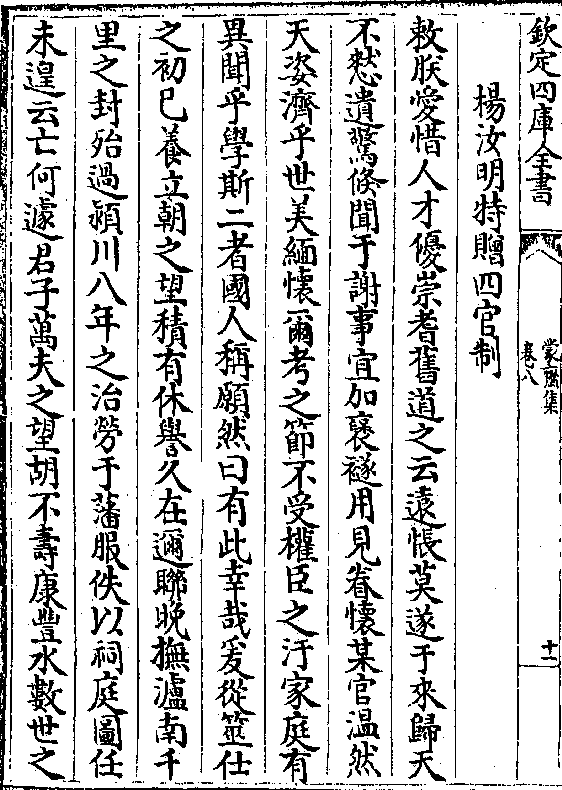 欽定四庫全書
蒙齋集
卷八
十一
楊汝明特贈四官制
敕朕愛惜人才優崇耆舊道之云遠悵莫遂于來歸天
不憖遺驚倐聞于謝事宜加褒襚用見眷懷某官温然
天姿濟乎世美緬懷爾考之節不受權臣之汙家庭有
異聞乎學斯二者國人稱願然曰有此幸哉爰從筮仕
之初已養立朝之望積有休譽久在邇聯晚撫瀘南千
里之封殆過潁川八年之治勞于藩服佚以祠庭圖任
未遑云亡何遽君子萬夫之望胡不壽康豐水數世之